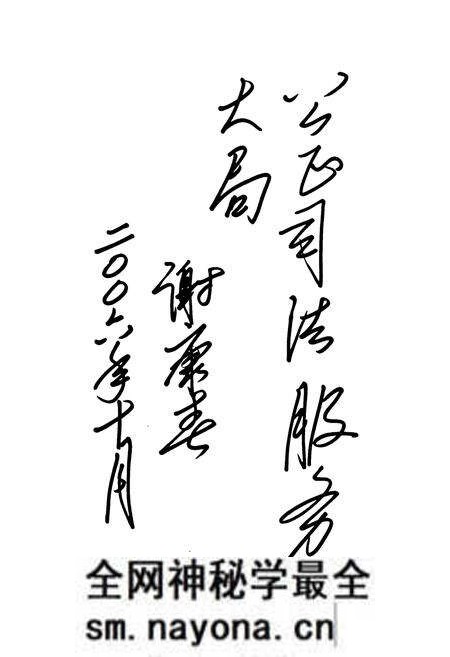 公正司法服务
大局
谢康春
二〇〇六年十月
全网神秘学最全
sm.nayona.cn